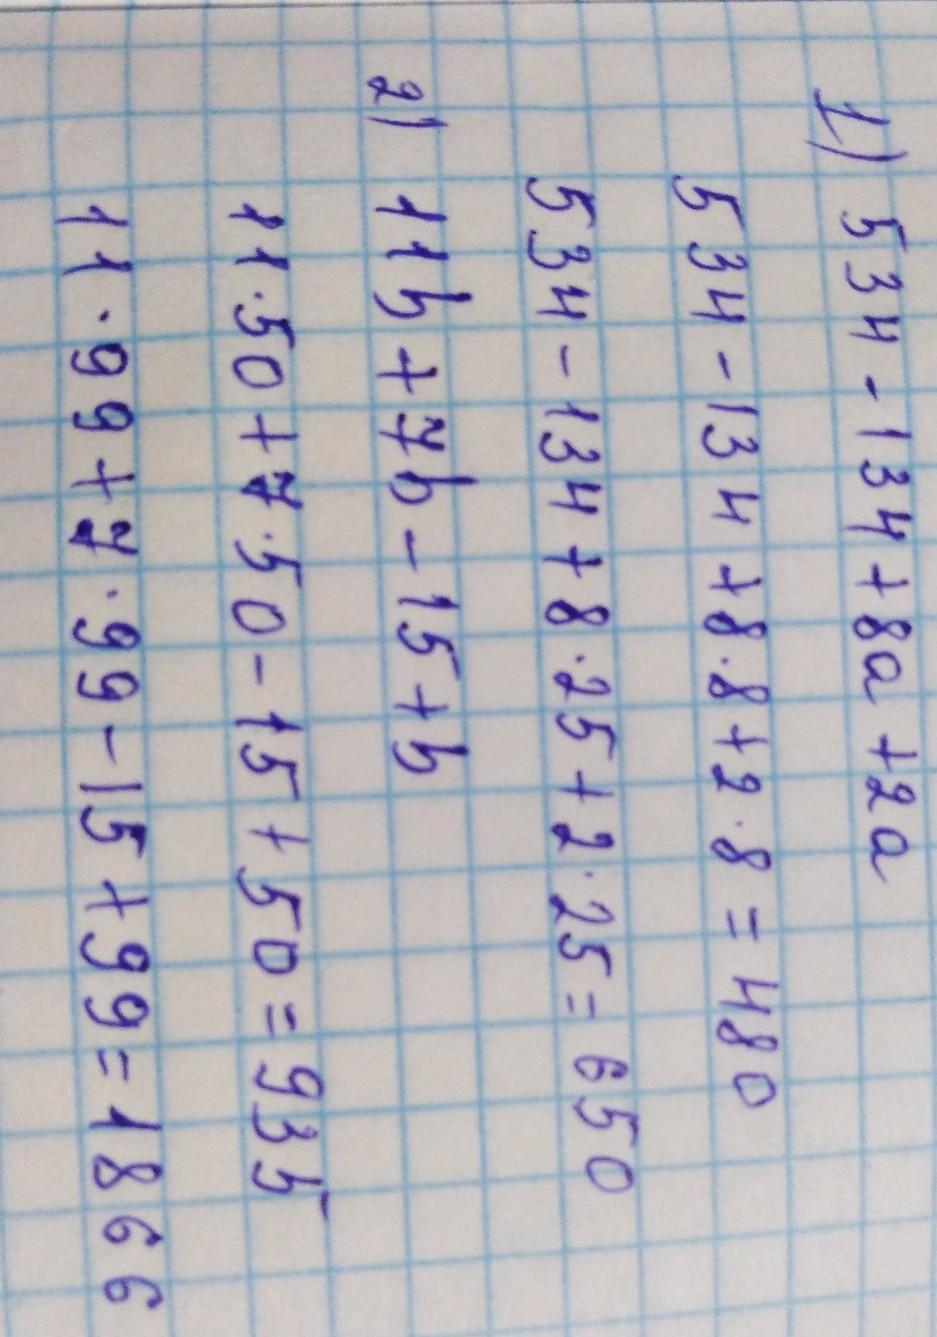 1) 534-134+8a+2a
534-134+8·8+2·8=480
534-134+8·25+2·25=650
2) 11b+7b-15+b
11·50+7·50-15+50=935
11·99+7·99-15+99=1866